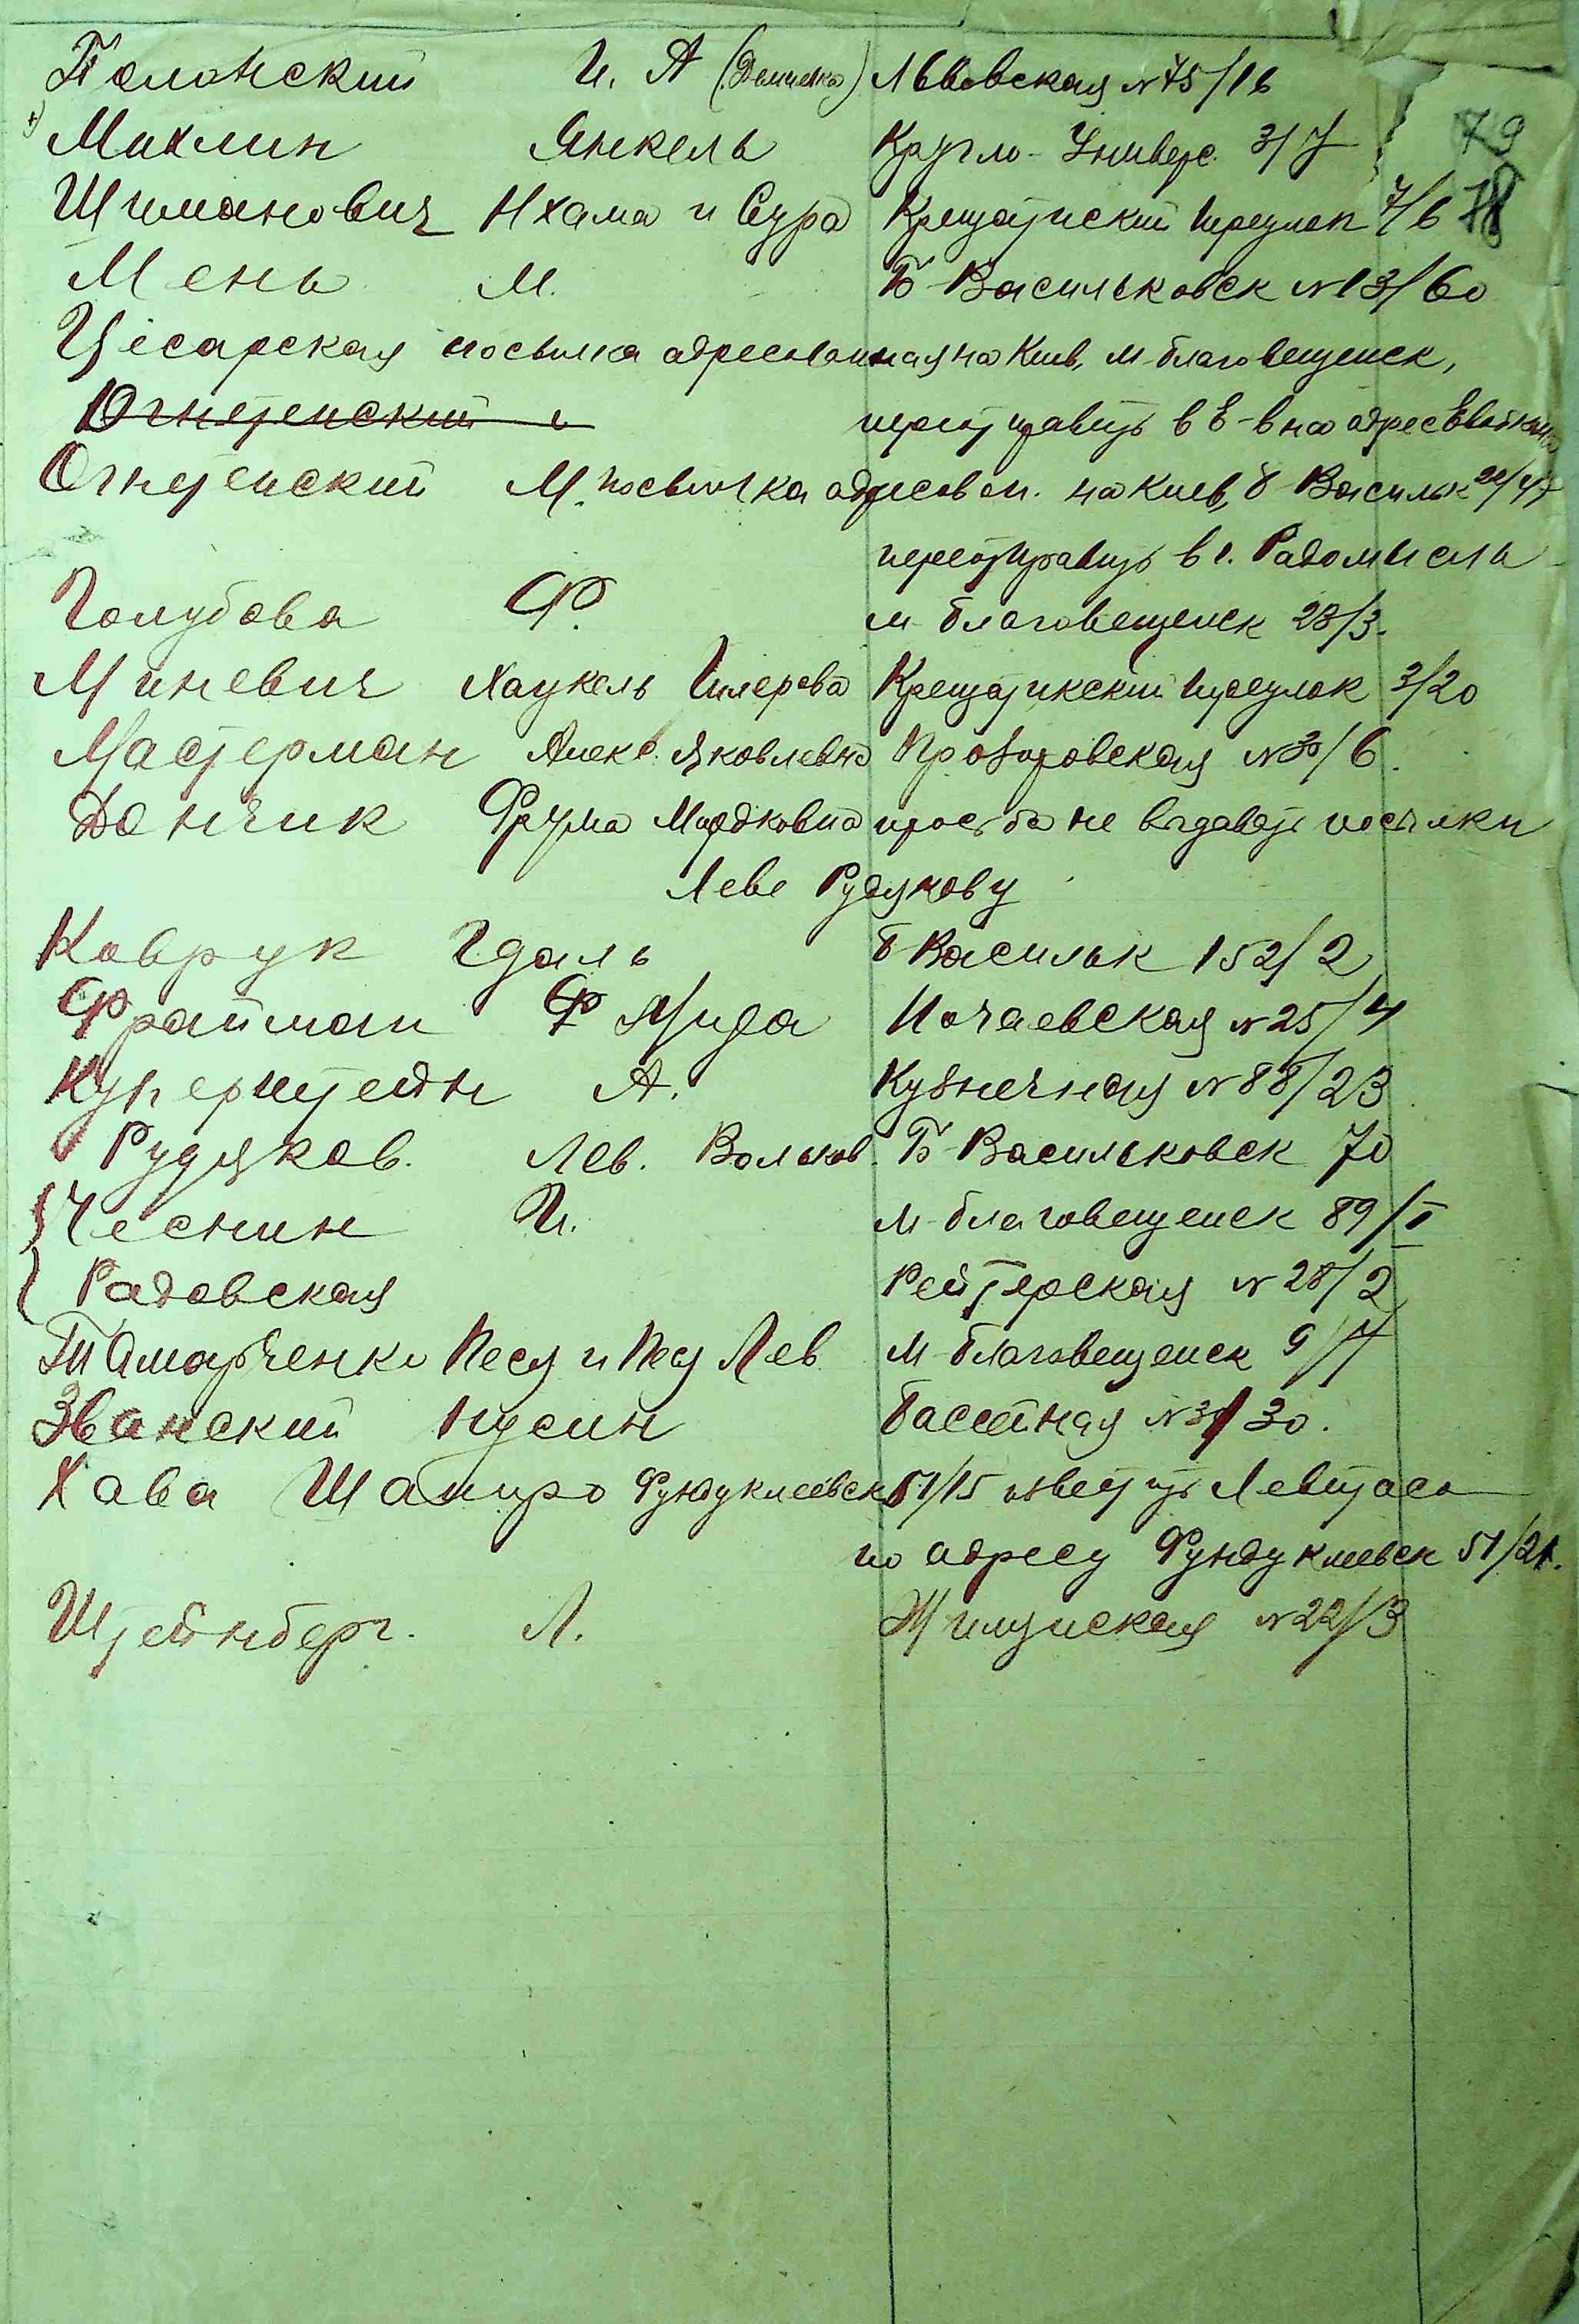 Полонский И. А (Демиевка) Львовская №75/16
Михлин Янкель Кругло-Универс. 3/7 79
Шиманович Нхама и Сура Крещатиский переулок 7/6 78
Мень М. Б-Васильковск №13/60
Цесарская посылка адресованная на Киев, м-благовещенск,
Огнетенский переотправить в Е-в на адрес
Огнетенский М. посылка адресован. на Киев, б-Васильк 22/47
переотправить в г. Радомысль
Голубова Ф. м-благовещенск 28/3.
Миневич Хацкель Крещатикский переулок 3/20
Мастерман Алекс. Яковлевна Прозоровская №30/6.
Дончик Фрума Мордковна просьба не выдавать посылки
Леве Рудякову
Коврук Гдаль Б Васильк 152/2
Фрайман Ф Мира Почаевская №25/4
Куперштейн А. Кузнечная №88/23
Рудяков. Лев. Вольков. Б-Васильковск 70
Чеснин И. м-благовещенск 89/I
Радовская Рейтерская №28/2
Тамарченко Песя и Лев м-благовещенск 9/7
Званский Нусин Бассейная № 30.
Хава Шапиро Фундуклеевск 51/15 известить Левитаса
по адресу Фундуклеевск 51/21.
Штейнберг. Л. Жилянская №22/3